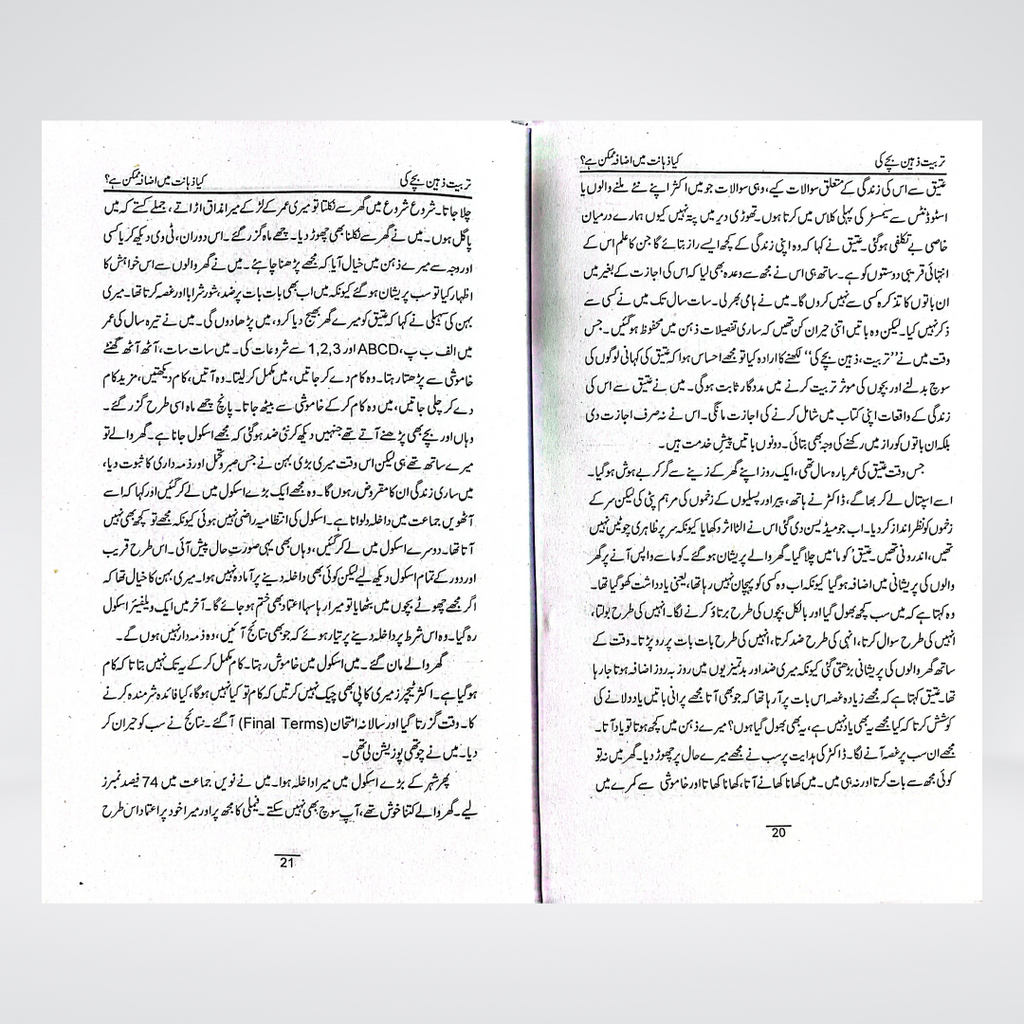 تربیت ذہین بچے کی
کیا ذہانت میں اضافہ ممکن ہے؟
عتیق سے اس کی زندگی کے متعلق سوالات کیے، وہی سوالات جو میں اکثر اپنے نئے ملنے والوں یا
اسٹوڈنٹس سے سیمسٹر کی پہلی کلاس میں کرتا ہوں۔ تھوڑی دیر میں پتہ نہیں کیوں ہمارے درمیان
خاصی بے تکلفی ہوگئی۔ عتیق نے کہا کہ وہ اپنی زندگی کے کچھ ایسے راز بتائے گا جن کا علم اس کے
انتہائی قریبی دوستوں کو ہے۔ ساتھ ہی اس نے مجھ سے وعدہ بھی لیا کہ اس کی اجازت کے بغیر میں
ان باتوں کا تذکرہ کسی سے نہیں کروں گا۔ میں نے ہامی بھر لی۔ سات سال تک میں نے کسی سے
ذکر نہیں کیا۔ لیکن وہ باتیں اتنی حیران کن تھیں کہ ساری تفصیلات ذہن میں محفوظ ہوگئیں۔ جس
وقت میں نے ”تربیت، ذہین بچے کی“ لکھنے کا ارادہ کیا تو مجھے احساس ہوا کہ عتیق کی کہانی لوگوں کی
سوچ بدلنے اور بچوں کی موثر تربیت کرنے میں مددگار ثابت ہوگی۔ میں نے عتیق سے اس کی
زندگی کے واقعات اپنی کتاب میں شامل کرنے کی اجازت مانگی۔ اس نے نہ صرف اجازت دی
بلکہ ان باتوں کو راز میں رکھنے کی وجہ بھی بتائی۔ دونوں باتیں پیشِ خدمت ہیں۔
جس وقت عتیق کی عمر بارہ سال تھی، ایک روز اپنے گھر کے زینے سے گر کر بے ہوش ہوگیا۔
اسے اسپتال لے کر بھاگے، ڈاکٹر نے ہاتھ، پیر اور پسلیوں کے زخموں کی مرہم پٹی کی لیکن سر کے
زخموں کو نظر انداز کر دیا۔ اب جو میڈیسن دی گئی اس نے الٹا اثر دکھایا کیونکہ سر پر ظاہری چوٹیں نہیں
تھیں، اندرونی تھیں۔ عتیق ’کوما‘ میں چلا گیا۔ گھر والے پریشان ہو گئے۔ کوما سے واپس آنے پر گھر
والوں کی پریشانی میں اضافہ ہوگیا کیونکہ اب وہ کسی کو پہچان نہیں رہا تھا، یعنی یادداشت کھو گیا تھا۔
وہ کہتا ہے کہ میں سب کچھ بھول گیا اور بالکل بچوں کی طرح برتاؤ کرنے لگا۔ انہیں کی طرح بولتا،
انہیں کی طرح سوال کرتا، انہی کی طرح ضد کرتا، انہیں کی طرح بات بات پر رو پڑتا۔ وقت کے
ساتھ گھر والوں کی پریشانی بڑھتی گئی کیونکہ میری ضد اور بدتمیزیوں میں روز بہ روز اضافہ ہوتا جا رہا
تھا۔ عتیق کہتا ہے کہ مجھے زیادہ غصہ اس بات پر آ رہا تھا کہ جو بھی آتا مجھے پرانی باتیں یاد دلانے کی
کوشش کرتا کہ کیا مجھے یہ بھی یاد نہیں ہے، یہ بھی بھول گیا ہوں؟ میرے ذہن میں کچھ ہوتا تو یاد آتا۔
مجھے ان سب پر غصہ آنے لگا۔ ڈاکٹر کی ہدایت پر سب نے مجھے میرے حال پر چھوڑ دیا۔ گھر میں نہ تو
کوئی مجھ سے بات کرتا اور نہ ہی میں۔ میں کھانا کھانے آتا، کھانا کھاتا اور خاموشی سے کمرے میں
20
تربیت ذہین بچے کی
کیا ذہانت میں اضافہ ممکن ہے؟
چلا جاتا۔ شروع شروع میں گھر سے نکلتا تو میری عمر کے لڑکے میرا مذاق اڑاتے، جملے کستے کہ میں
پاگل ہوں۔ میں نے گھر سے نکلنا بھی چھوڑ دیا۔ چھے ماہ گزر گئے۔ اس دوران، ٹی وی دیکھ کر یا کسی
اور وجہ سے میرے ذہن میں خیال آیا کہ مجھے پڑھنا چاہئے۔ میں نے گھر والوں سے اس خواہش کا
اظہار کیا تو سب پریشان ہو گئے کیونکہ میں اب بھی بات بات پر ضد، شور شرابا اور غصہ کرتا تھا۔ میری
بہن کی سہیلی نے کہا کہ عتیق کو میرے گھر بھیج دیا کرو، میں پڑھا دوں گی۔ میں نے تیرہ سال کی عمر
میں الف ب پ، ABCD اور 1,2,3 سے شروعات کی۔ میں سات سات، آٹھ آٹھ گھنٹے
خاموشی سے پڑھتا رہتا۔ وہ کام دے کر جاتیں، میں مکمل کر لیتا۔ وہ آتیں، کام دیکھتیں، مزید کام
دے کر چلی جاتیں، میں وہ کام کر کے خاموشی سے بیٹھ جاتا۔ پانچ چھے ماہ اسی طرح گزر گئے۔
وہاں اور بچے بھی پڑھنے آتے تھے جنہیں دیکھ کر نئی ضد ہوگئی کہ مجھے اسکول جانا ہے۔ گھر والے تو
میرے ساتھ تھے ہی لیکن اس وقت میری بڑی بہن نے جس صبر و تحمل اور ذمہ داری کا ثبوت دیا،
میں ساری زندگی ان کا مقروض رہوں گا۔ وہ مجھے ایک بڑے اسکول میں لے کر گئیں اور کہا کہ اسے
آٹھویں جماعت میں داخلہ دلوانا ہے۔ اسکول کی انتظامیہ راضی نہیں ہوئی کیونکہ مجھے تو کچھ بھی نہیں
آتا تھا۔ دوسرے اسکول میں لے کر گئیں، وہاں بھی یہی صورتِ حال پیش آئی۔ اس طرح قریب
اور دور کے تمام اسکول دیکھ لیے لیکن کوئی بھی داخلہ دینے پر آمادہ نہیں ہوا۔ میری بہن کا خیال تھا کہ
اگر مجھے چھوٹے بچوں میں بٹھایا تو میرا رہا سہا اعتماد بھی ختم ہو جائے گا۔ آخر میں ایک ویلفیئر اسکول
رہ گیا۔ وہ اس شرط پر داخلہ دینے پر تیار ہوئے کہ جو بھی نتائج آئیں، وہ ذمہ دار نہیں ہوں گے۔
گھر والے مان گئے۔ میں اسکول میں خاموش رہتا۔ کام مکمل کر کے یہ تک نہیں بتاتا کہ کام
ہوگیا ہے۔ اکثر ٹیچرز میری کاپی بھی چیک نہیں کرتیں کہ کام تو کیا نہیں ہوگا، کیا فائدہ شرمندہ کرنے
کا۔ وقت گزرتا گیا اور سالانہ امتحان (Final Terms) آ گئے۔ نتائج نے سب کو حیران کر
دیا۔ میں نے چوتھی پوزیشن لی تھی۔
پھر شہر کے بڑے اسکول میں میرا داخلہ ہوا۔ میں نے نویں جماعت میں 74 فیصد نمبرز
لیے۔ گھر والے کتنا خوش تھے، آپ سوچ بھی نہیں سکتے۔ فیملی کا مجھ پر اور میرا خود پر اعتماد اس طرح
21